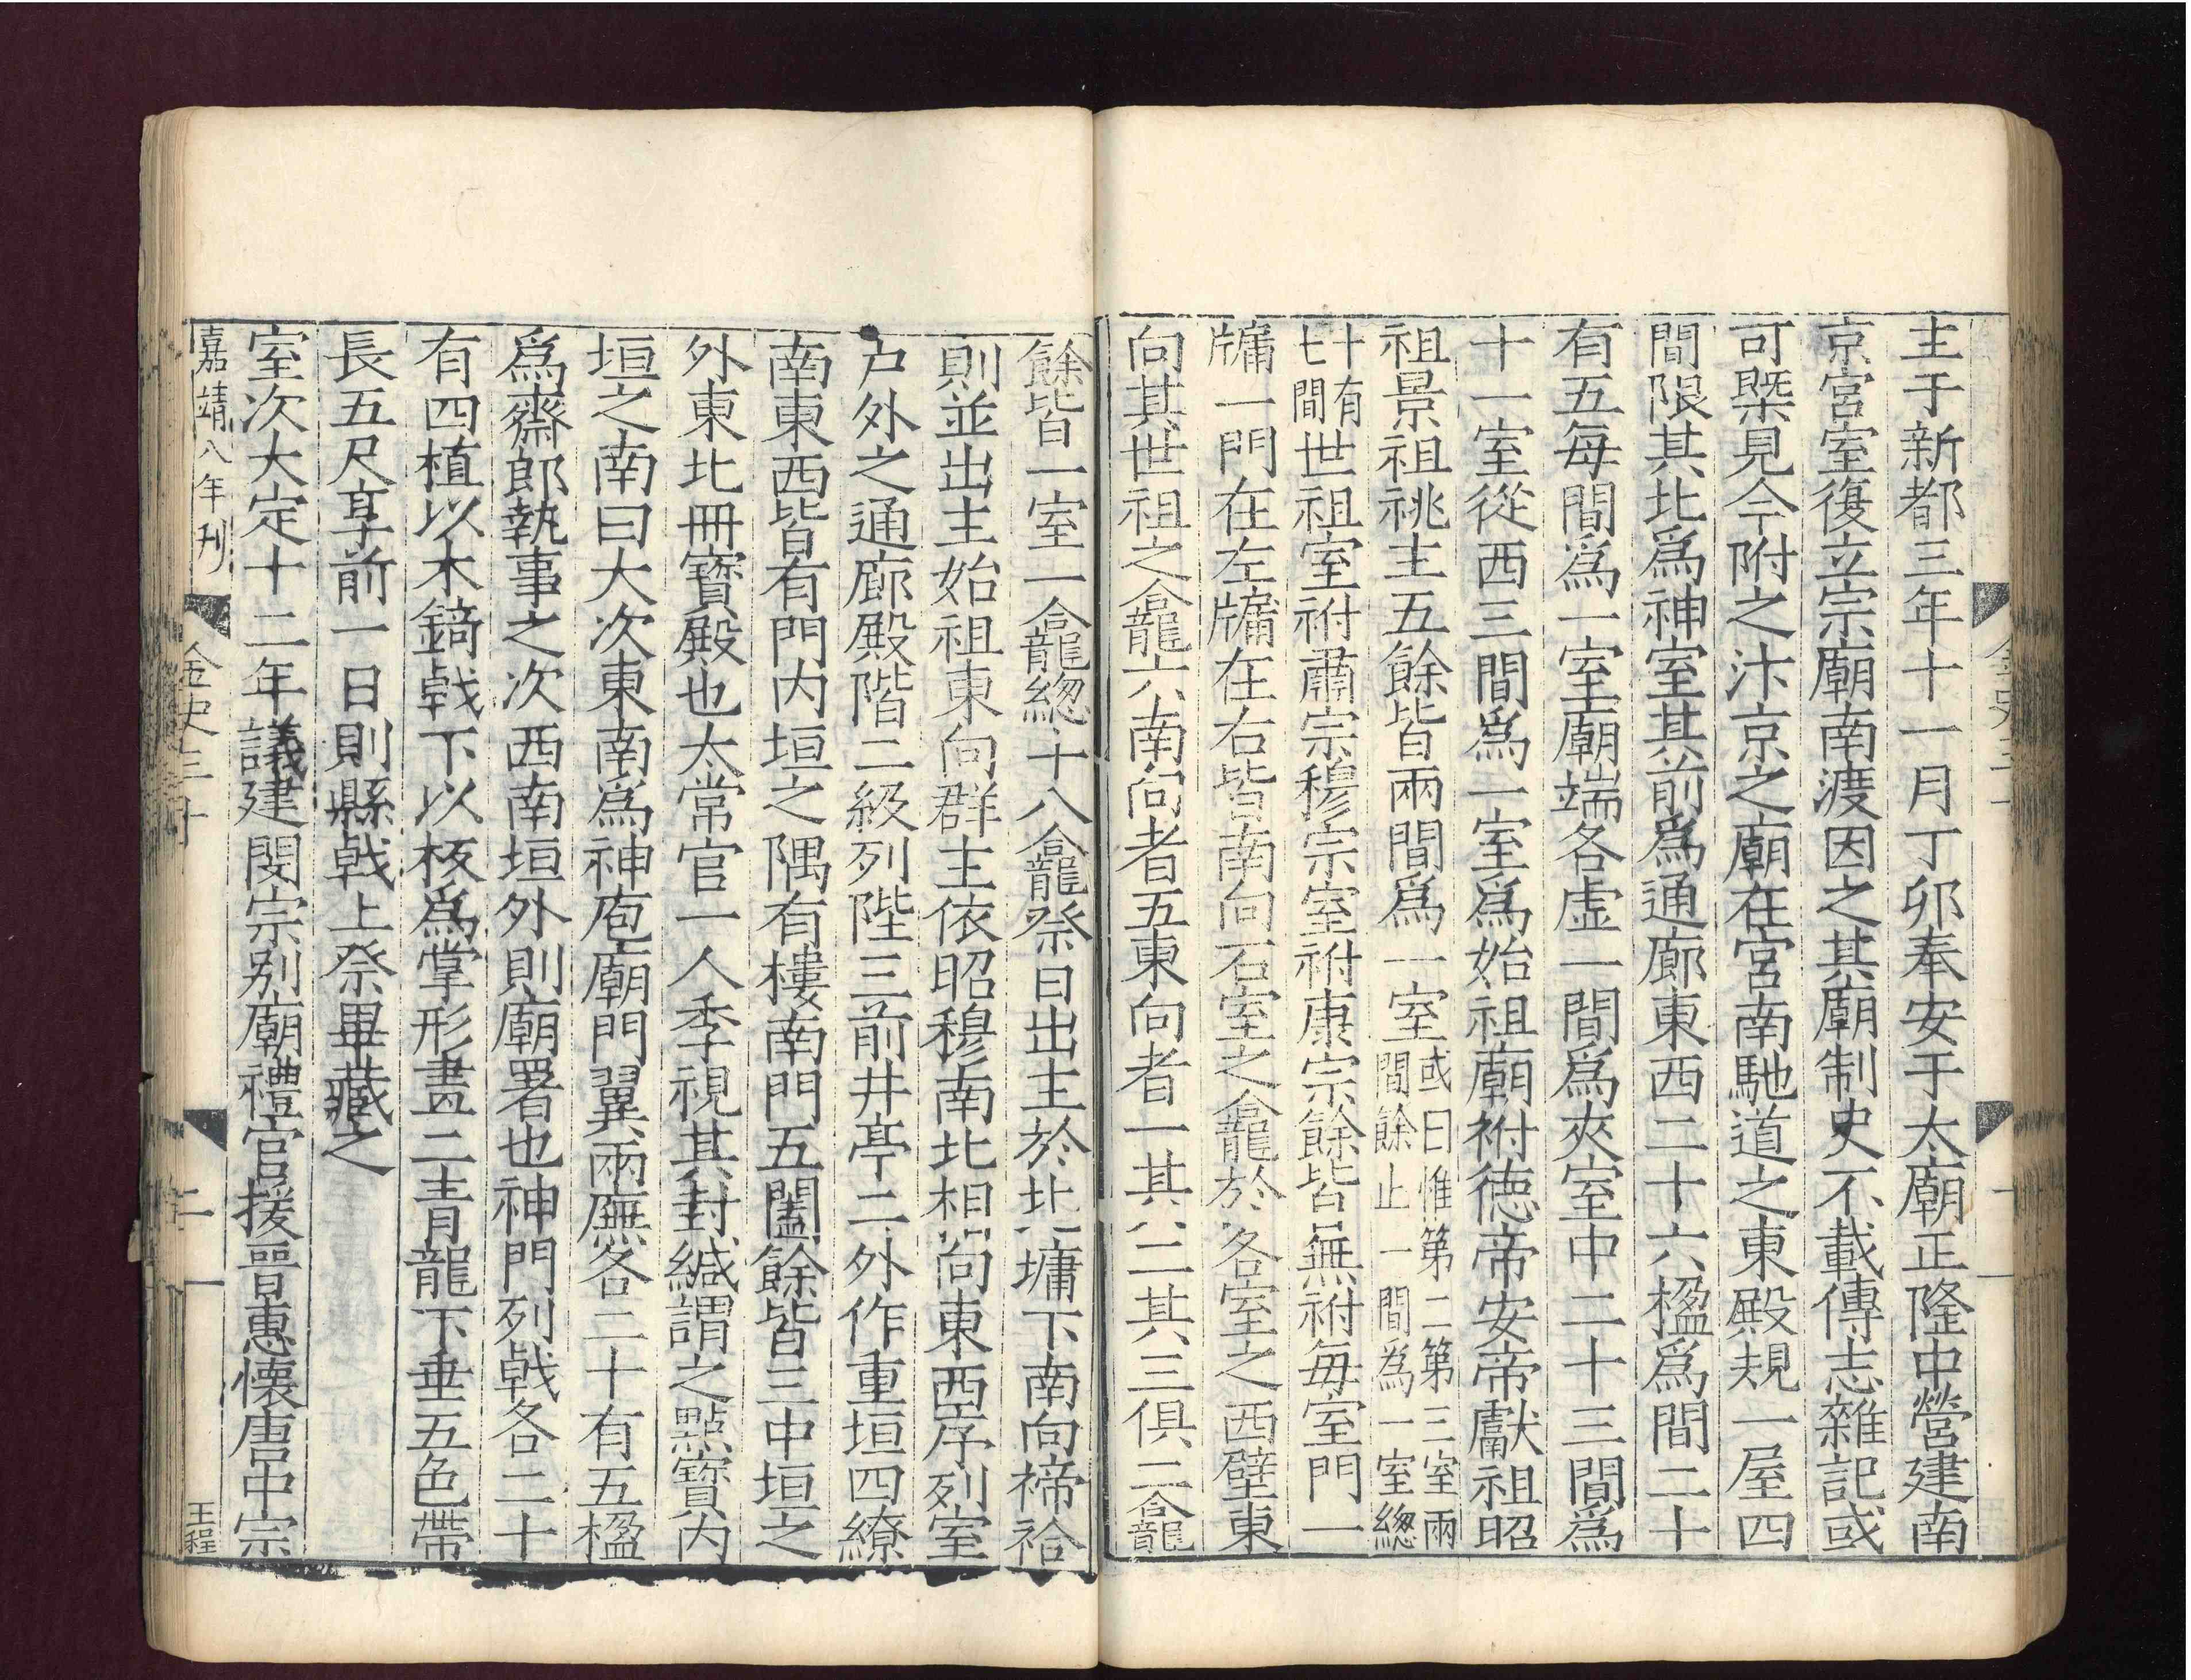 主于新都三年十一月丁卯奉安于太廟正隆中營建南
京宮室復立宗廟南渡因之其廟制史不載傳志雜記或
可槩見今附之汴京之廟在宮南馳道之東殿規一屋四
間限其北爲神室其前爲通廊東西二十六楹爲間二十
有五每間爲一室廟端各虛一間爲夾室中二十三間爲
十一室從西三間爲一室爲始祖廟祔德帝安帝獻祖昭
祖景祖祧主五餘皆兩間爲一室或曰惟第二第三室兩間餘止一間為一室總
十有七間世祖室祔肅宗穆宗室祔康宗餘皆無祔每室門一
牖一門在左牖在右皆南向石室之龕於各室之西壁東
向其世祖之龕六南向者五東向者一其二其三俱二龕
餘皆一室一龕總十八龕祭日出主於北墉下南向禘祫
則並出主始祖東向群主依昭穆南北相向東西序列室
户外之通廊殿階二級列陛三前井亭二外作重垣四繚
南東西皆有門内垣之隅有樓南門五闔餘皆三中垣之
外東北冊寶殿也太常官一人季視其封緘謂之點寶内
垣之南曰大次東南爲神庖廟門翼兩廡各二十有五楹
爲齋郎執事之次西南垣外則廟署也神門列戟各二十
有四植以木錡戟下以板爲掌形畫二青龍下垂五色帶
長五尺享前一日則縣戟上祭畢藏之
室次大定十二年議建閔宗别廟禮官援晉惠懷唐中宗
嘉靖八年刊
金史三十
二
王程